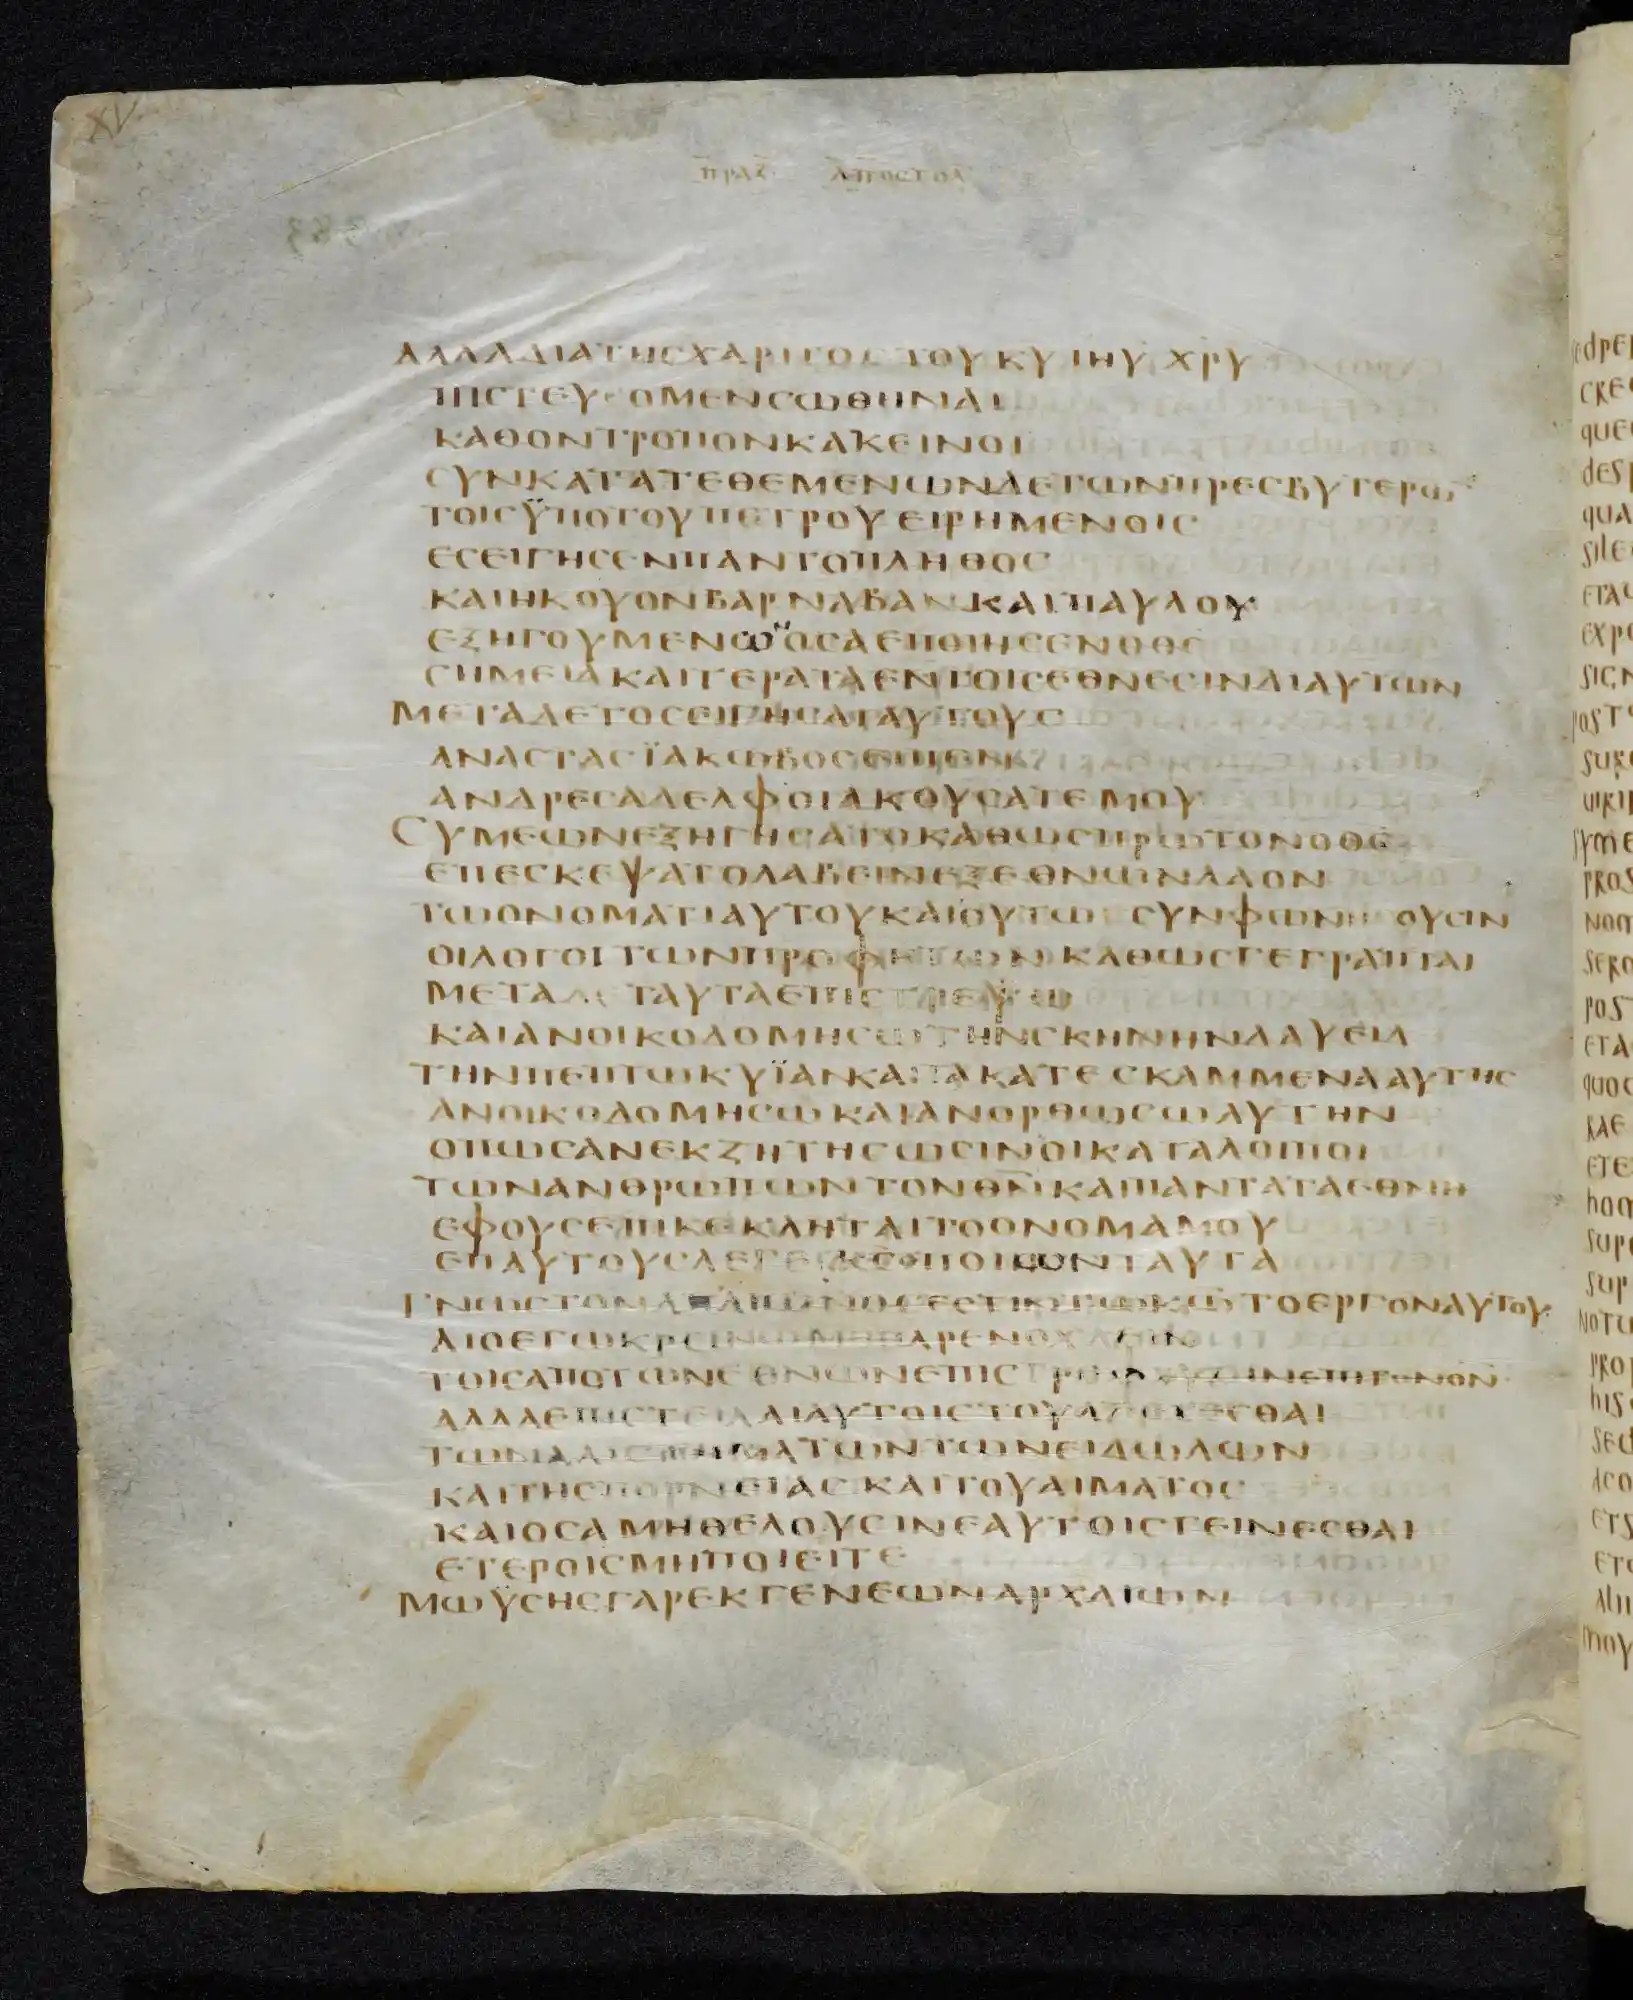 XV
ΠΡΑΞ ΑΠΟΣΤΟΛ
ΑΛΛΑΔΙΑΤΗϹΧΑΡΙΤΟϹΤΟΥΚΥΙΗΥΧΡΥ
ΠΙϹΤΕΥϹΟΜΕΝϹΩΘΗΝΑΙ
ΚΑΘΟΝΤΡΟΠΟΝΚΑΚΕΙΝΟΙ
ϹΥΝΚΑΤΑΤΕΘΕΜΕΝΩΝΔΕΤΩΝΠΡΕϹΒΥΤΕΡΩ
ΤΟΙϹΫΠΟΤΟΥΠΕΤΡΟΥΕΙΡΗΜΕΝΟΙϹ
ΕϹΕΙΓΗϹΕΝΠΑΝΤΟΠΛΗΘΟϹ
ΚΑΙΗΚΟΥΟΝΒΑΡΝΑΒΑΝΚΑΙΠΑΥΛΟΥ
ΕΞΗΓΟΥΜΕΝΩΟϹΑΕΠΟΙΗϹΕΝΟΘϹ
ϹΗΜΕΙΑΚΑΙΤΕΡΑΤΑΕΝΤΟΙϹΕΘΝΕϹΙΝΔΙΑΥΤΩΝ
ΜΕΤΑΔΕΤΟϹΕΙΓΗϹΑΙΑΥΤΟΥϹ
ΑΝΑϹΤΑϹΪΑΚΩΒΟϹΕΙΠΕΝ
ΑΝΔΡΕϹΑΔΕΛΦΟΙΑΚΟΥϹΑΤΕΜΟΥ
ϹΥΜΕΩΝΕΞΗΓΗϹΑΤΟΚΑΘΩϹΠΡΩΤΟΝΟΘϹ
ΕΠΕϹΚΕΨΑΤΟΛΑΒΕΙΝΕΞΕΘΝΩΝΛΑΟΝ
ΤΩΟΝΟΜΑΤΙΑΥΤΟΥΚΑΙΟΥΤΩϹϹΥΝΦΩΝΗϹΟΥϹΙΝ
ΟΙΛΟΓΟΙΤΩΝΠΡΟΦΗΤΩΝΚΑΘΩϹΓΕΓΡΑΠΤΑΙ
ΜΕΤΑΔΕΤΑΥΤΑΕΠΙϹΤΡΕΨΩ
ΚΑΙΑΝΟΙΚΟΔΟΜΗϹΩΤΗΝϹΚΗΝΗΝΔΑΥΕΙΔ
ΤΗΝΠΕΠΤΩΚΥΪΑΝΚΑΙΤΑΚΑΤΕϹΚΑΜΜΕΝΑΑΥΤΗϹ
ΑΝΟΙΚΟΔΟΜΗϹΩΚΑΙΑΝΟΡΘΩϹΩΑΥΤΗΝ
ΟΠΩϹΑΝΕΚΖΗΤΗϹΩϹΙΝΟΙΚΑΤΑΛΟΙΠΟΙ
ΤΩΝΑΝΘΡΩΠΩΝΤΟΝΘΝΚΑΙΠΑΝΤΑΤΑΕΘΝΗ
ΕΦΟΥϹΕΠΙΚΕΚΛΗΤΑΙΤΟΟΝΟΜΑΜΟΥ
ΕΠΑΥΤΟΥϹΛΕΓΕΙΚϹΟΠΟΙΩΝΤΑΥΤΑ
ΓΝΩϹΤΟΝΑΠΑΙΩΝΟϹΕϹΤΙΝΤΩΚΩΤΟΕΡΓΟΝΑΥΤΟΥ
ΔΙΟΕΓΩΚΡΕΙΝΩΜΗΠΑΡΕΝΟΧΛΕΙΝ
ΤΟΙϹΑΠΟΤΩΝΕΘΝΩΝΕΠΙϹΤΡΕΦΟΥϹΙΝΕΠΙΤΟΝΘΝ
ΑΛΛΑΕΠΙϹΤΕΙΛΑΙΑΥΤΟΙϹΤΟΥΑΠΕΧΕϹΘΑΙ
ΤΩΝΑΛΙϹΓΗΜΑΤΩΝΤΩΝΕΙΔΩΛΩΝ
ΚΑΙΤΗϹΠΟΡΝΕΙΑϹΚΑΙΤΟΥΑΙΜΑΤΟϹ
ΚΑΙΟϹΑΜΗΘΕΛΟΥϹΙΝΕΑΥΤΟΙϹΓΕΙΝΕϹΘΑΙ
ΕΤΕΡΟΙϹΜΗΠΟΙΕΙΤΕ
ΜΩΫϹΗϹΓΑΡΕΚΓΕΝΕΩΝΑΡΧΑΙΩΝ